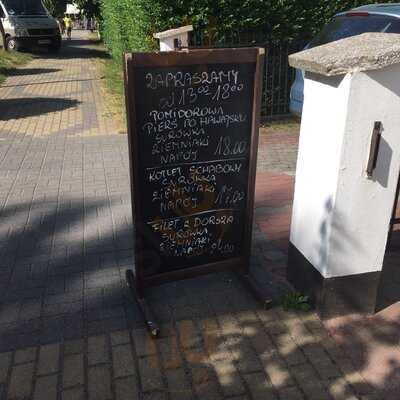 ZAPRASZAMY
OD 13⁰⁰-18⁰⁰
POMIDOROWA
PIERŚ PO HAWAJSKU
SURÓWKA
ZIEMNIAKI
NAPÓJ 18.00
KOTLET SCHABOWY
SURÓWKA
ZIEMNIAKI
NAPÓJ 17.00
FILET Z DORSZA
SURÓWKA
ZIEMNIAKI
NAPÓJ